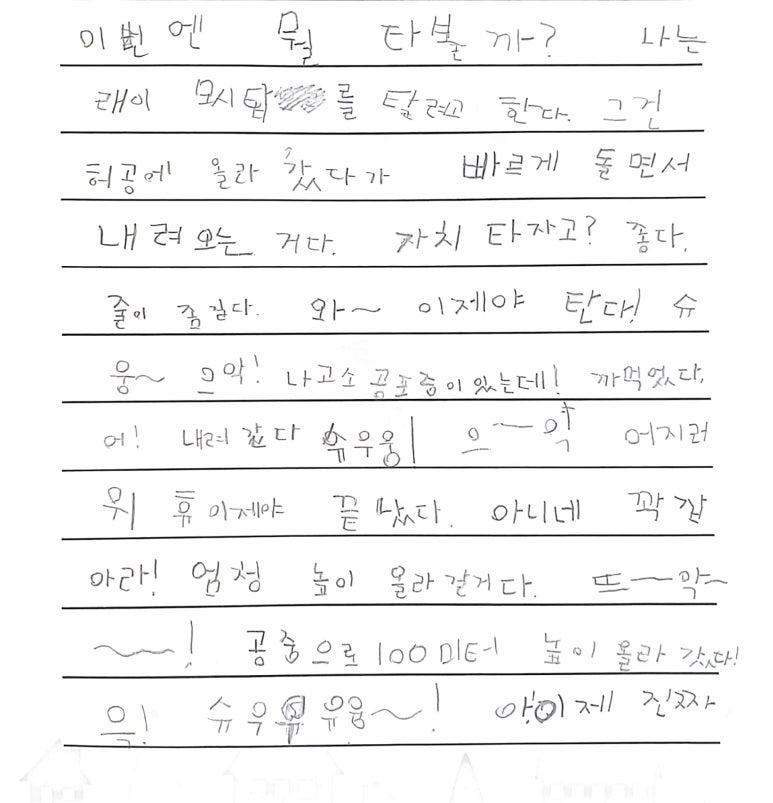 이번엔 뭘 타볼까? 나는
래이 모시탑를 탈려고 한다. 그건
허공에 올라 갔다가 빠르게 돌면서
내려오는 거다. 가치 타자고? 좋다.
줄이 좀 길다. 와~ 이제야 탄다! 슈
웅~ 으악! 나고소 공포증이 있는데! 까먹었다.
어! 내려 갔다 슈우웅! 으~악 어지러
워 휴 이제야 끝났다. 아니네 꽉 잡
아라! 엄청 높이 올라 갈거다. 뜨~악~
~~! 공중으로 100미터 높이 올라 갔다!
윽! 슈우우우웅~! 아! 이제 진짜